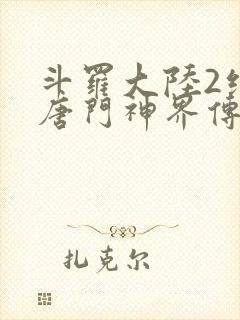 斗羅大陸2絕
唐門神界傳
扎克尔